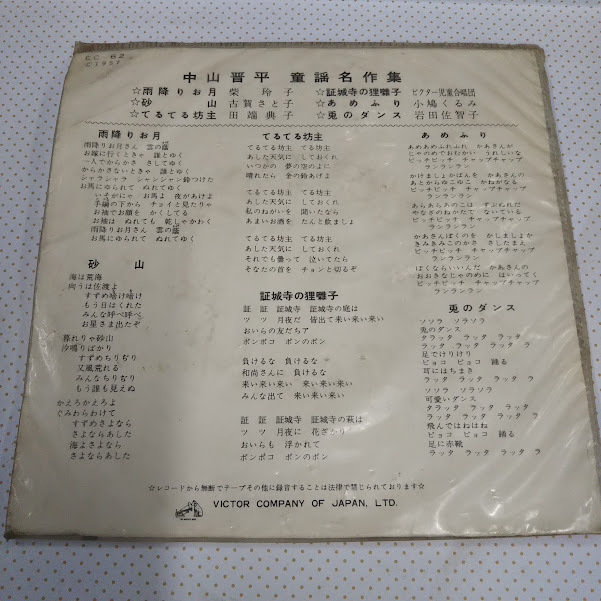 EC-62
©1957
中山晋平 童謡名作集
☆雨降りお月 柴玲子
☆砂山 古賀さと子
☆てるてる坊主 田端典子
☆証城寺の狸囃子 ビクター児童合唱団
☆あめふり 小鳩くるみ
☆兎のダンス 岩田佐智子
雨降りお月
雨降りお月さん 雲の蔭
お嫁に行くときゃ 誰とゆく
一人でからかさ さしてゆく
からかさないときゃ 誰とゆく
シャラシャラ シャンシャン鈴つけた
お馬にゆられて ぬれてゆく
いそがにゃ お馬よ 夜があけよ
手綱の下から チョイと見たりゃ
お袖でお顔を かくしてる
お袖は ぬれても 乾しゃかわく
雨降りお月さん 雲の蔭
お馬にゆられて ぬれてゆく
砂山
海は荒海
向うは佐渡よ
すずめ啼け啼け
もう日はくれた
みんな呼べ呼べ
お星さま出たぞ
暮れりゃ砂山
汐鳴りばかり
すずめちりぢり
又風荒れる
みんなちりぢり
もう誰も見えぬ
かえろかえろよ
ぐみわらわけて
すずめさよなら
さよならあした
海よさよなら
さよならあした
てるてる坊主
てるてる坊主 てる坊主
あした天気に しておくれ
いつかの 夢の空のよに
晴れたら 金の鈴あげよ
てるてる坊主 てる坊主
あした天気に しておくれ
私のねがいを 聞いたなら
あまいお酒を たんと飲ましょ
てるてる坊主 てる坊主
あした天気に しておくれ
それでも曇って 泣いてたら
そなたの首を チョンと切るぞ
証城寺の狸囃子
証 証 証城寺 証城寺の庭は
ツ ツ 月夜だ 皆出て来い来い来い
おいらの友だちア
ポンポコ ポンのポン
負けるな 負けるな
和尚さんに 負けるな
来い来い来い 来い来い来い
みんな出て 来い来い来い
証 証 証城寺 証城寺の萩は
ツ ツ 月夜に 花ざかり
おいらも 浮かれて
ポンポコ ポンのポン
あめふり
あめあめふれふれ かあさんが
じゃのめでおむかい うれしいな
ピッチピッチ チャップチャップ
ランランラン
かけましょかばんを かあさんの
あとからゆこゆこ かねがなる
ピッチピッチ チャップチャップ
ランランラン
あらあらあのこは ずぶぬれだ
やなぎのねかたで ないている
ピッチピッチ チャップチャップ
ランランラン
かあさんぼくのを かしましょか
きみきみこのかさ さしたまえ
ピッチピッチ チャップチャップ
ランランラン
ぼくならいいんだ かあさんの
おおきなじゃのめに はいってく
ピッチピッチ チャップチャップ
ランランラン
兎のダンス
ソソラ ソラソラ
兎のダンス
タラッタ ラッタ ラッタ
ラッタ ラッタ ラッタ ラ
足でけりけり
ピョコ ピョコ 踊る
耳にはちまき
ラッタ ラッタ ラッタ ラ
ソソラ ソラソラ
可愛いダンス
タラッタ ラッタ ラッタ
ラッタ ラッタ ラッタ ラ
飛んではねはね
ピョコ ピョコ 踊る
足に赤靴
ラッタ ラッタ ラッタ ラ
☆レコードから無断でテープその他に録音することは法律で禁じられております☆
VICTOR COMPANY OF JAPAN, LTD.